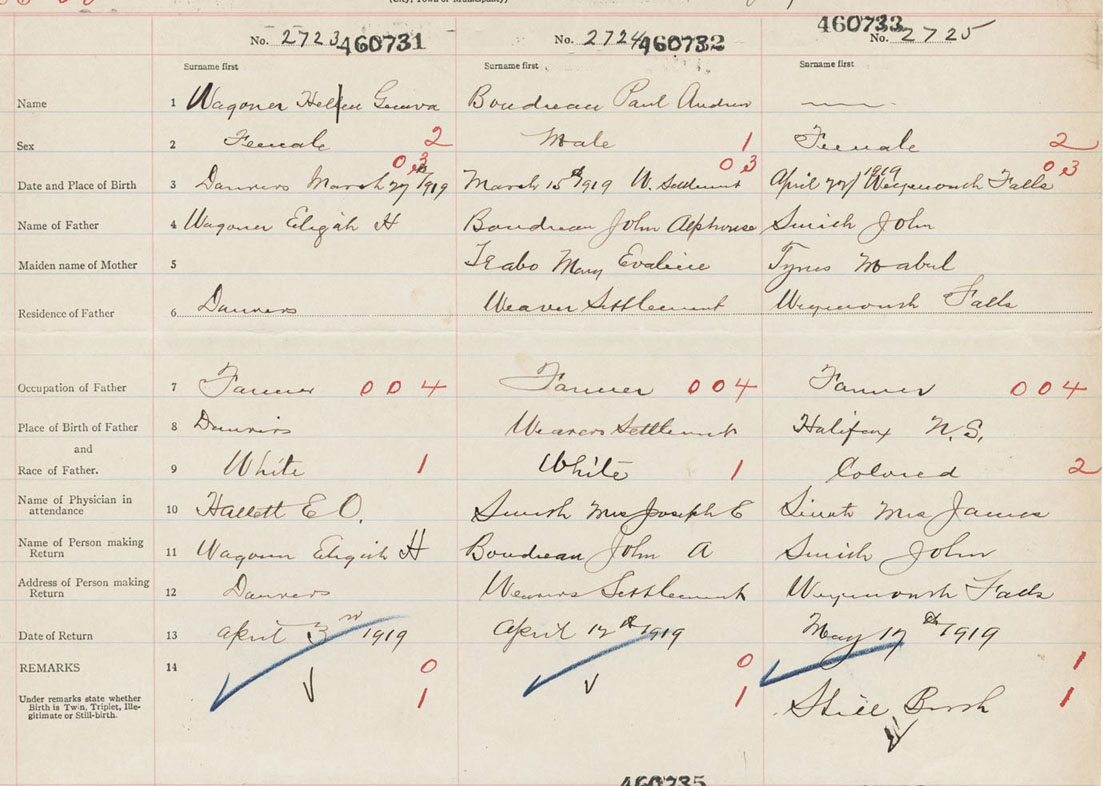 (City, Town or Municipality)
No. 2723 460731 No. 2724 460732 460733 No. 2725
Surname first Surname first Surname first
Name 1 Wagoner Helen Geneva Boudreau Paul Andrew
Sex 2 Female 2 Male 1 Female 2
03 03 03
Date and Place of Birth 3 Danvers March 27th 1919 March 15th 1919 W. Settlement April 22/1919 Weymouth Falls
Name of Father 4 Wagoner Eligah H Boudreau John Alphonse Smith John
Maiden name of Mother 5 Mary Evaline Tynes Mabel
Residence of Father 6 Danvers Weaver Settlement Weymouth Falls
Occupation of Father 7 Farmer 004 Farmer 004 Farmer 004
Place of Birth of Father 8 Danvers Weavers Settlement Halifax N.S.
and
Race of Father. 9 White 1 White 1 Colored 2
Name of Physician in attendance 10 Hallett E O. Smith Mrs Joseph E Mrs James
Name of Person making Return 11 Wagoner Eligah H Boudreau John A Smith John
Address of Person making Return 12 Danvers Weavers Settlement Weymouth Falls
Date of Return 13 April 3rd 1919 April 12th 1919 May 17th 1919
REMARKS 14 0 0 1
Under remarks state whether Birth is Twin, Triplet, Ille-
gitimate or Still-birth. 1 1 Still Birth 1
460735